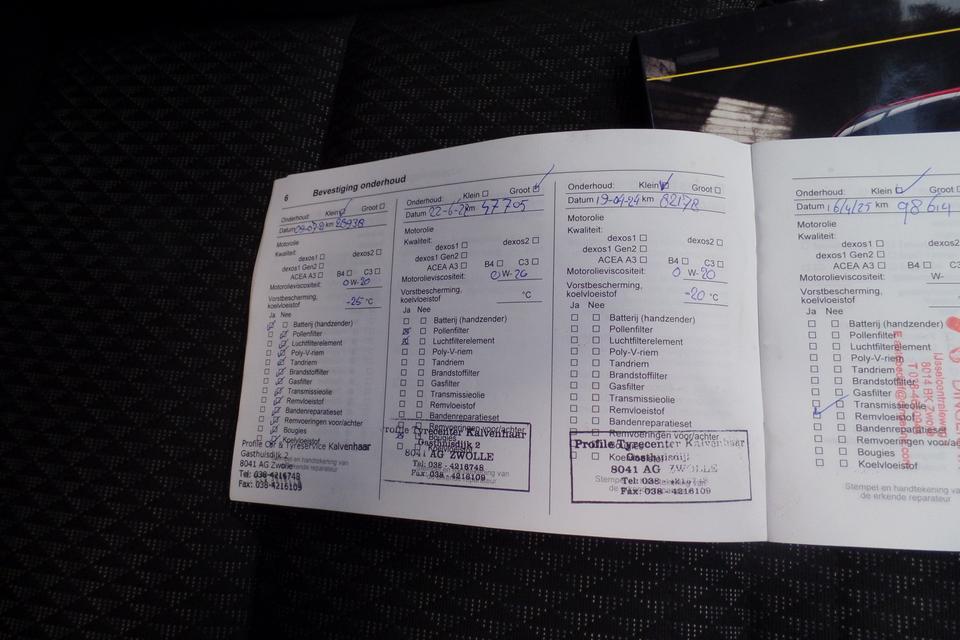 6 Bevestiging onderhoud
Onderhoud: Klein Groot
Datum km 28938
Motorolie
Kwaliteit:
dexos1 dexos2
dexos1 Gen2
ACEA A3 B4 C3
Motorolieviscositeit: 0 W-20
Vorstbescherming,
koelvloeistof -25 °C
Ja Nee
Batterij (handzender)
Pollenfilter
Luchtfilterelement
Poly-V-riem
Tandriem
Brandstoffilter
Gasfilter
Transmissieolie
Remvloeistof
Bandenreparatieset
Remvoeringen voor/achter
Bougies
Koelvloeistof
Profile Tyreservice Kalvenhaar
Gasthuisdijk 2
8041 AG Zwolle
Tel: 038-4216748
Fax: 038-4216109
Onderhoud: Klein Groot
Datum 22-6- km 47705
Motorolie
Kwaliteit:
dexos1 dexos2
dexos1 Gen2
ACEA A3 B4 C3
Motorolieviscositeit: 0 W-20
Vorstbescherming,
koelvloeistof °C
Ja Nee
Batterij (handzender)
Pollenfilter
Luchtfilterelement
Poly-V-riem
Tandriem
Brandstoffilter
Gasfilter
Transmissieolie
Remvloeistof
Bandenreparatieset
Remvoeringen voor/achter
Bougies
Profile Tyrecenter Kalvenhaar
Gasthuisdijk 2
8041 AG ZWOLLE
Tel: 038 - 4216748
Fax: 038 - 4216109
Onderhoud: Klein Groot
Datum 19-04-24 km 82178
Motorolie
Kwaliteit:
dexos1 dexos2
dexos1 Gen2
ACEA A3 B4 C3
Motorolieviscositeit: 0 W-20
Vorstbescherming,
koelvloeistof -20 °C
Ja Nee
Batterij (handzender)
Pollenfilter
Luchtfilterelement
Poly-V-riem
Tandriem
Brandstoffilter
Gasfilter
Transmissieolie
Remvloeistof
Bandenreparatieset
Remvoeringen voor/achter
Profile Tyrecenter Kalvenhaar
8041 AG ZWOLLE
Tel: 038 - 4216748
Fax: 038 - 4216109
Onderhoud: Klein Groot
Datum 16/4/25 km 98614
Motorolie
Kwaliteit:
dexos1 dexos2
dexos1 Gen2
ACEA A3 B4 C3
Motorolieviscositeit: W-
Vorstbescherming,
koelvloeistof
Ja Nee
Batterij (handzender)
Pollenfilter
Luchtfilterelement
Poly-V-riem
Tandriem
Brandstoffilter
Gasfilter
Transmissieolie
Remvloeistof
Bandenreparatieset
Remvoeringen voor/a
Bougies
Koelvloeistof
Stempel en handtekening van
de erkende reparateur